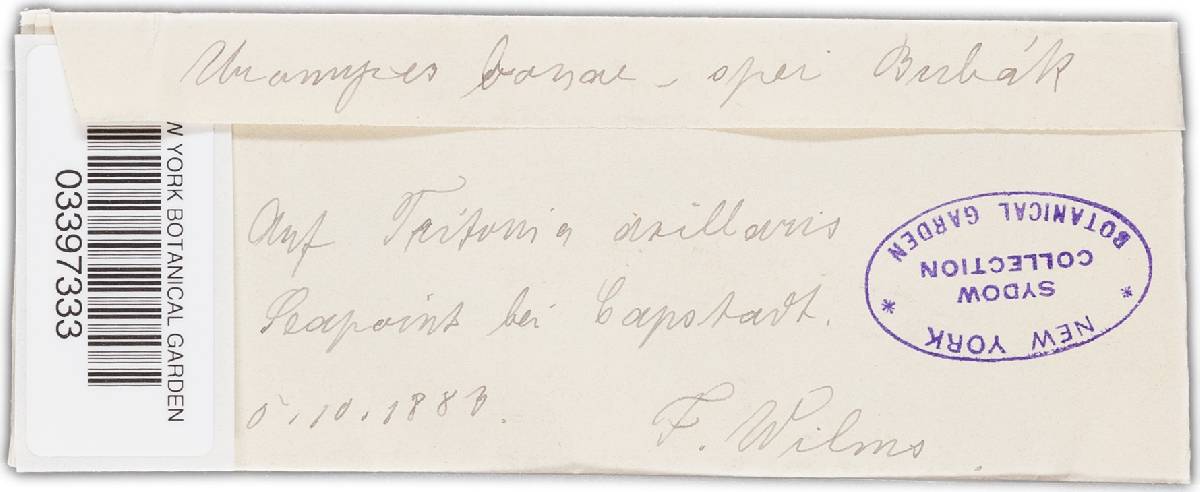 Uromyces bonae-spei Bubák
Auf Tritonia axillaris
Seapoint bei Capstadt.
5.10.1883.
F. Wilms
NEW YORK BOTANICAL GARDEN
SYDOW
COLLECTION
N YORK BOTANICAL GARDEN
03397333